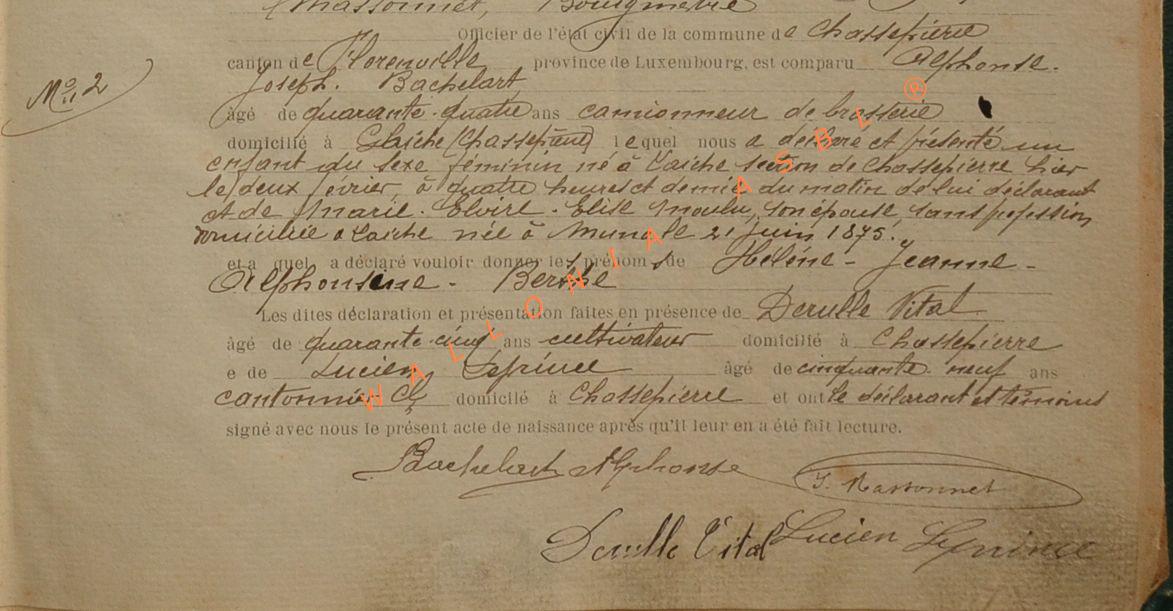 Massonnet, Bourgmestre
Officier de l'état civil de la commune de Chassepierre
canton de Florenville province de Luxembourg, est comparu Alphonse-
Joseph. Bachelart
No 2
âgé de quarante-quatre ans camionneur de brasserie
domicilié à Laiche (Chassepierre) lequel nous a déclaré et présenté un
enfant du sexe féminin né à Laiche section de Chassepierre hier
le deux février, à quatre heures et demie du matin de lui déclarant
et de Marie-Elvire-Elise Moulu, son épouse, sans profession
domiciliée à Laiche née à Muno le 21 juin 1875.
et a quel a déclaré vouloir donner les prénoms de Hélène-Jeanne-
Alphonsine-Berthe
Les dites déclaration et présentation faites en présence de Derulle Vital
âgé de quarante-cinq ans cultivateur domicilié à Chassepierre
e de Lucien Leprince âgé de cinquante-neuf ans
cantonnier domicilié à Chassepierre et ont le déclarant et témoins
signé avec nous le présent acte de naissance après qu'il leur en a été fait lecture.
Bachelart Alphonse
J. Massonnet
Derulle Vital Lucien Leprince
WALLONIA ASBL ®